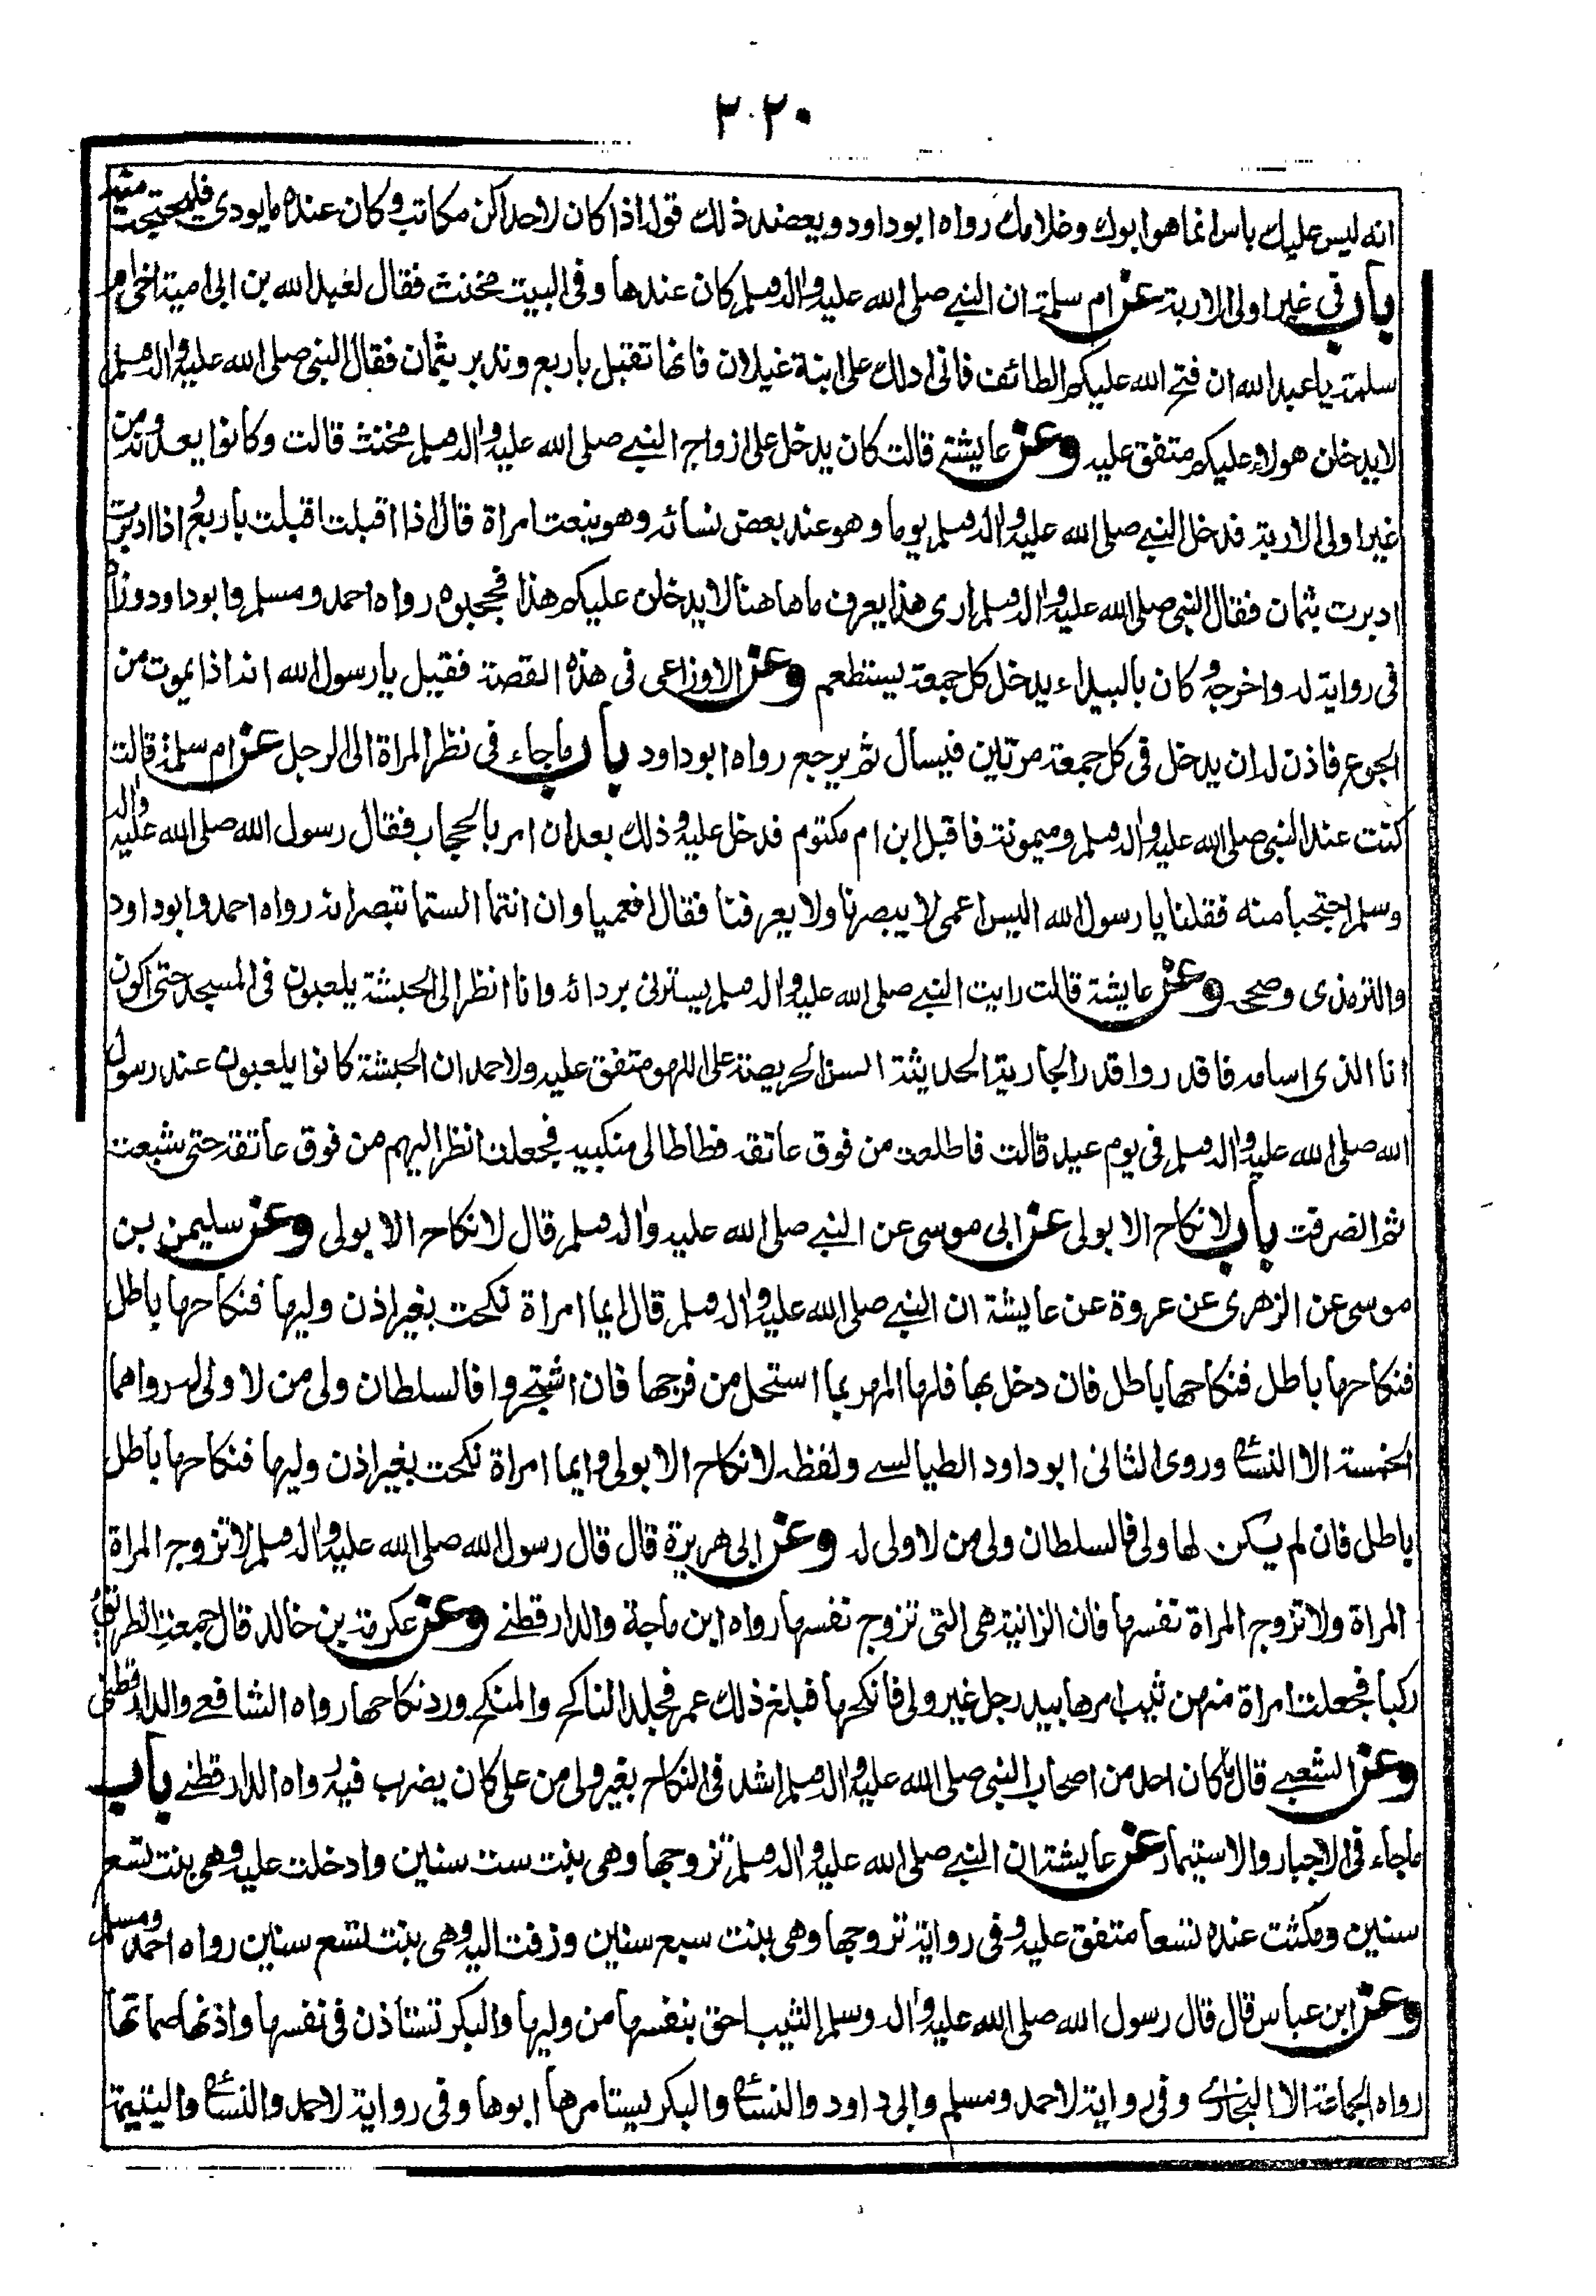 ٢٢٠
انه ليس عليك باس انما هو ابوك وغلامك رواه ابوداود ويعضد ذلك قوله اذا كان لاحداكن مكاتب وكان عنده ما يودى فلتحتجب منه
باب فى غير اولى الاربة عن ام سلمة ان النبى صلى الله عليه واله وسلم كان عندها وفى البيت مخنث فقال لعبد الله بن ابى امية اخى ام
سلمة يا عبد الله ان فتح الله عليكم الطائف فانى ادلك على ابنة غيلان فانها تقبل باربع وتدبر بثمان فقال النبى صلى الله عليه واله وسلم
لا يدخلن هولاء عليكم متفق عليه وعن عايشة قالت كان يدخل على ازواج النبى صلى الله عليه واله وسلم مخنث قالت وكانوا يعدونه من
غير اولى الاربة فدخل النبى صلى الله عليه واله وسلم يوما وهو عند بعض نسائه وهو ينعت امراة قال اذا اقبلت اقبلت باربع واذا ادبرت
ادبرت بثمان فقال النبى صلى الله عليه واله وسلم ارى هذا يعرف ما هاهنا لا يدخلن عليكم هذا فحجبوه رواه احمد ومسلم وابوداود وزاد
فى رواية له واخرجه وكان بالبيداء يدخل كل جمعة يستطعم وعن الاوزاعى فى هذه القصة فقيل يا رسول الله انه اذا يموت من
الجوع فاذن له ان يدخل فى كل جمعة مرتين فيسال ثم يرجع رواه ابوداود باب ما جاء فى نظر المراة الى الرجل عن ام سلمة قالت
كنت عند النبى صلى الله عليه واله وسلم وميمونة فاقبل ابن ام مكتوم فدخل عليه وذلك بعد ان امر بالحجاب فقال رسول الله صلى الله عليه واله
وسلم احتجبا منه فقلنا يا رسول الله اليس اعمى لا يبصرنا ولا يعرفنا فقال افعميا وان انتما الستما تبصرانه رواه احمد وابوداود
والترمذى وصححه وعن عايشة قالت رايت النبى صلى الله عليه واله وسلم يسترنى بردائه وانا انظر الى الحبشة يلعبون فى المسجد حتى اكون
انا الذى اسامه فاقدروا قدر الجارية الحديثة السن الحريصة على اللهو متفق عليه ولاحمد ان الحبشة كانوا يلعبون عند رسول
الله صلى الله عليه واله وسلم فى يوم عيد قالت فاطلعت من فوق عاتقه فطاطا لى منكبيه فجعلت انظر اليهم من فوق عاتقه حتى شبعت
ثم انصرفت باب لا نكاح الا بولى عن ابى موسى عن النبى صلى الله عليه واله وسلم قال لا نكاح الا بولى وعن سليمن بن
موسى عن الزهرى عن عروة عن عايشة ان النبى صلى الله عليه واله وسلم قال ايما امراة نكحت بغير اذن وليها فنكاحها باطل
فنكاحها باطل فنكاحها باطل فان دخل بها فلها المهر بما استحل من فرجها فان اشتجروا فالسلطان ولى من لا ولى له رواهما
الخمسة الا النسائى وروى الثانى ابوداود الطيالسى ولفظه لا نكاح الا بولى وايما امراة نكحت بغير اذن وليها فنكاحها باطل
باطل فان لم يكن لها ولى فالسلطان ولى من لا ولى له وعن ابى هريرة قال قال رسول الله صلى الله عليه واله وسلم لا تزوج المراة
المراة ولا تزوج المراة نفسها فان الزانية هى التى تزوج نفسها رواه ابن ماجة والدارقطنى وعن عكرمة بن خالد قال جمعت الطريق
ركبا فجعلت امراة منهن ثيب امرها بيد رجل غير ولى فانكحها فبلغ ذلك عمر فجلد الناكح والمنكح ورد نكاحها رواه الشافعى والدارقطنى
وعن الشعبى قال ما كان احد من اصحاب النبى صلى الله عليه واله وسلم اشد فى النكاح بغير ولى من على كان يضرب فيه رواه الدارقطنى باب
ما جاء فى الاجبار والاستيمار عن عايشة ان النبى صلى الله عليه واله وسلم تزوجها وهى بنت ست سنين وادخلت عليه وهى بنت تسع
سنين ومكثت عنده تسعا متفق عليه وفى رواية تزوجها وهى بنت سبع سنين وزفت اليه وهى بنت تسع سنين رواه احمد ومسلم
وعن ابن عباس قال قال رسول الله صلى الله عليه واله وسلم الثيب احق بنفسها من وليها والبكر تستاذن فى نفسها واذنها صماتها
رواه الجماعة الا البخارى وفى رواية لاحمد ومسلم وابى داود والنسائى والبكر يستامرها ابوها وفى رواية لاحمد والنسائى واليتيمة